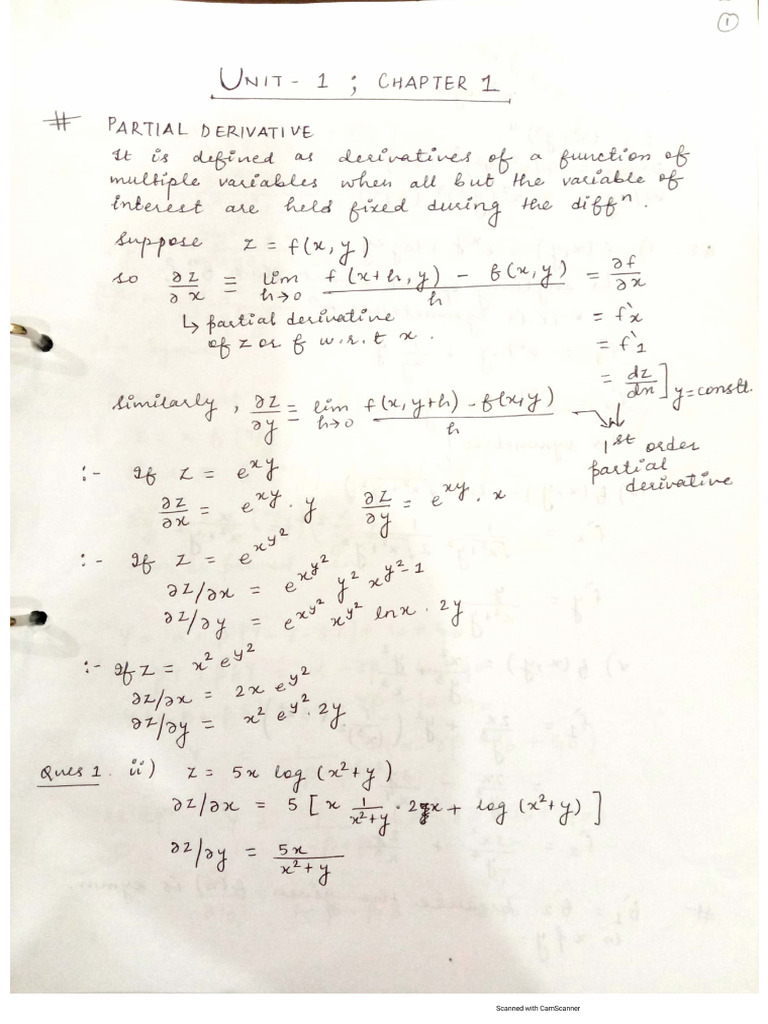 ①
UNIT - 1 ; CHAPTER 1
# PARTIAL DERIVATIVE
It is defined as derivatives of a function of
multiple variables when all but the variable of
interest are held fixed during the diffⁿ.
Suppose z = f(x, y)
so ∂z/∂x = lim h→0 f(x+h, y) - f(x, y) / h = ∂f/∂x
↳ partial derivative = f`x
of z or f w.r.t x. = f`1
= dz/dx ] y = constt.
Similarly, ∂z/∂y = lim h→0 f(x, y+h) - f(x, y) / h
1st order
partial
derivative
:- If z = e^xy
∂z/∂x = e^xy . y ∂z/∂y = e^xy . x
:- If z = e^x^y^2
∂z/∂x = e^x^y^2 y² x^y^2-1
∂z/∂y = e^x^y^2 x^y^2 lnx . 2y
:- If z = x² e^y^2
∂z/∂x = 2x e^y^2
∂z/∂y = x² e^y^2 . 2y
Ques 1. ii) z = 5x log (x²+y)
∂z/∂x = 5 [ x 1/x²+y . 2x + log (x²+y) ]
∂z/∂y = 5x / x²+y
Scanned with CamScanner